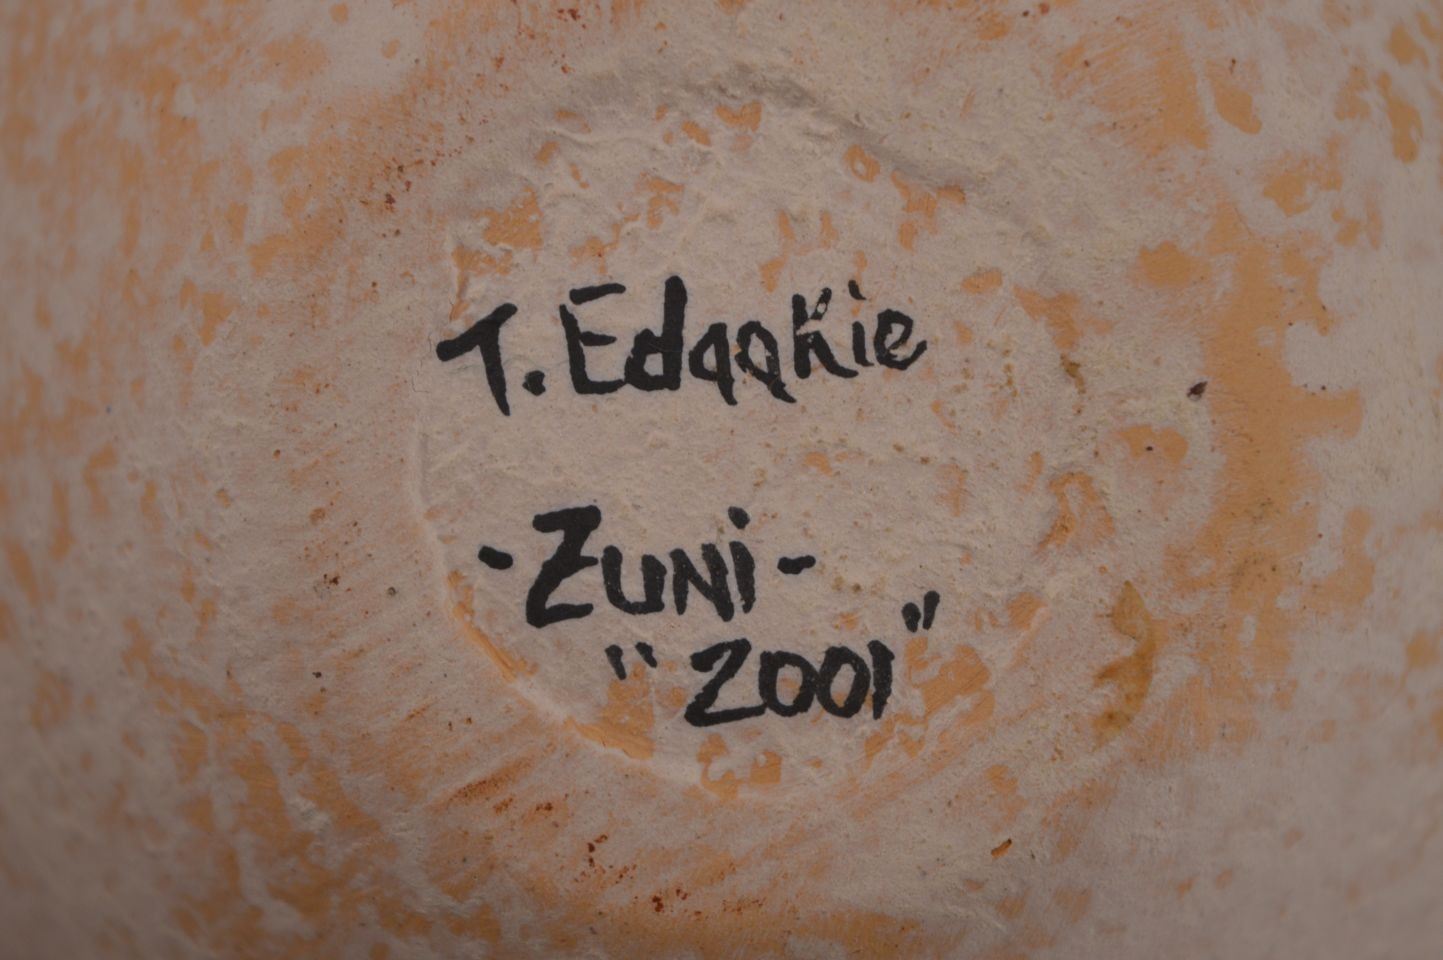 T. Edaakie
- Zuni -
"2001"